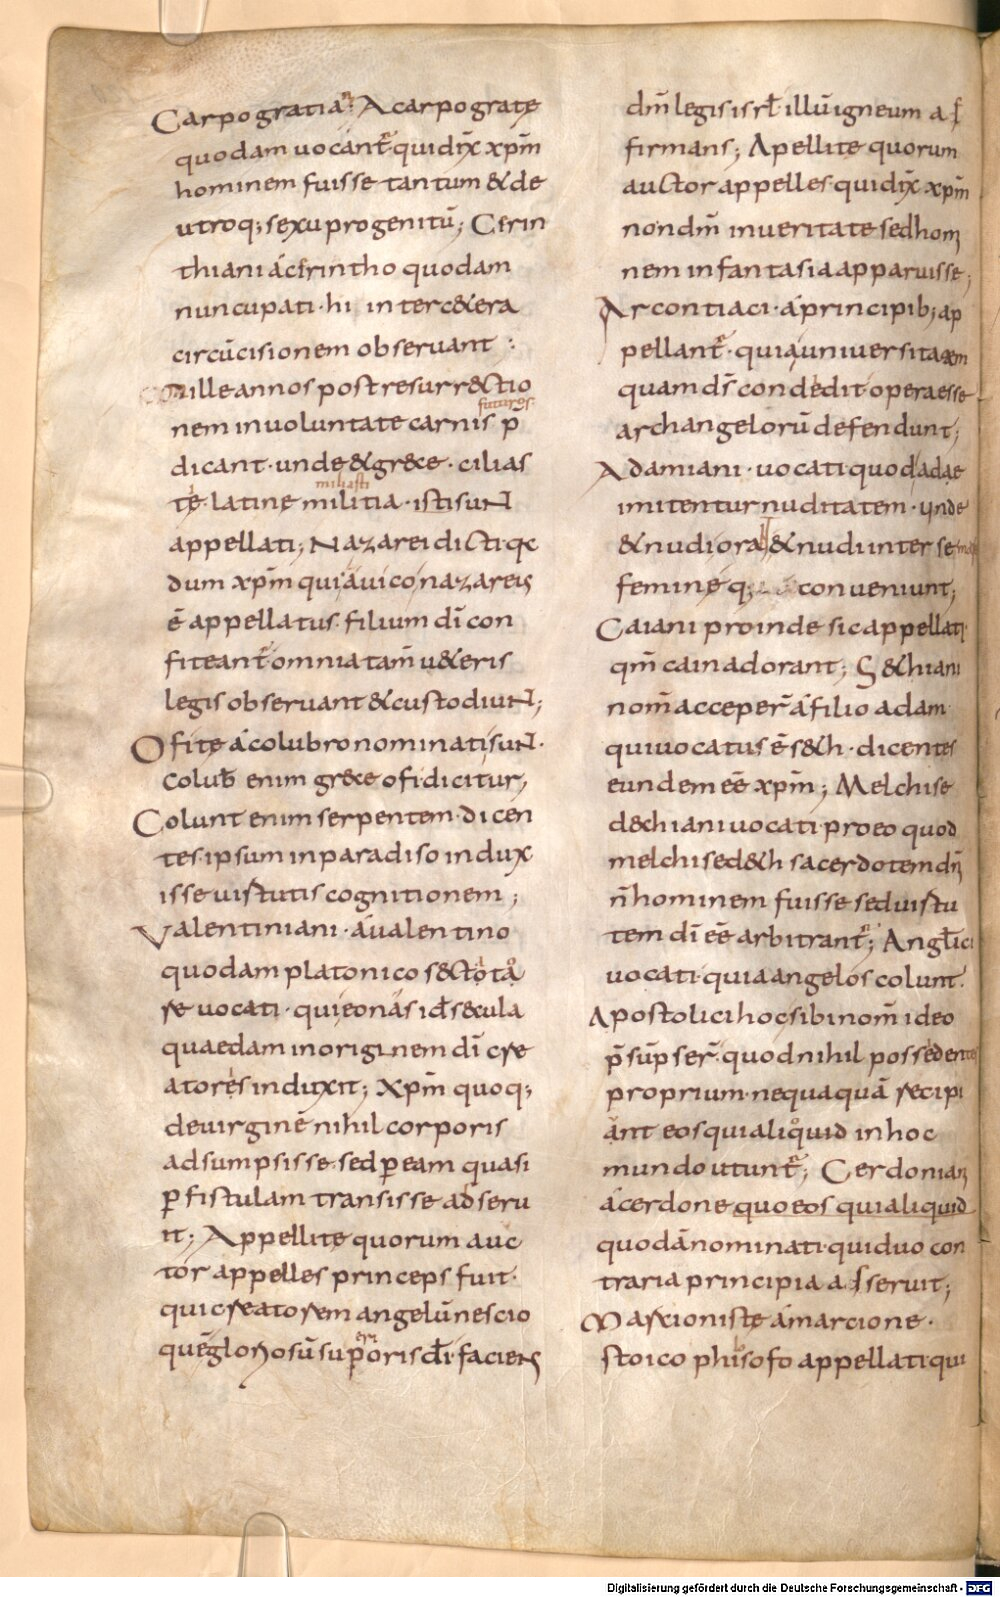 Carpogratiani; A carpograte
quodam uocant̄· qui dix̄ xp̄m
hominem fuisse tantum & de
utroq; sexu progenitū; Cerin
thiani á cerintho quodam
nuncupati· hi inter c&era
circūcisionem obseruant :
mille annos post resurr&ctio
futuros
nem in uoluntate carnis p̄
dicant· unde & gr&ce· cilias
miliasti
tę· latinę militia· isti suNt
appellati; Nazarei dicti
dum xp̄m qui á uico nazareis
ē appellatus· filium dī con
fiteant̄ omnia tam̄ u&eris
legis obseruant & custodiuNt;
Ofitę á colubro nominati suNt·
Colub̄ enim gr&ce ofi dicitur;
Colunt enim serpentem· dicen
tes· ipsum in paradiso indux
isse uirtutis cognitionem ;
Valentiniani· á ualentino
quodam platonico s&ctota
re uocati· qui eonas id· s&cula
quaedam in originem dī cre
atores induxit; Xp̄m quoq;
de uirginē nihil corporis
adsumpsisse· sed p̄ eam quasi
p̄ fistulam transisse adseru
it; Appellitę quorum auc
tor appelles princeps fuit·
qui creatorem angelū nescio
quē gloriosū superioris dī· faciens
dm̄ legis isrł illū igneum af
firmans; Apellitę quorum
auctor appelles· qui dix̄ xp̄m
non dm̄ in ueritate sed homi
nem in fantasia apparuisse;
Arcontiaci· á principib; ap
pellant̄· quia uniuersitatem
quam ds̄ condedit· opera esse
archangelorū defendunt;
Adamiani· uocati quod adae
imitentur nuditatem· unde
& nudi orant & nudi inter se
feminę q; conueniunt;
Caiani proinde sic appellati
qm̄ cain adorant; S&hiani
nom̄ acceper̄ á filio adam·
qui uocatus ē s&h· dicentes
eundem eē xp̄m; Melchise
d&chiani uocati· pro eo quod
melchised&h sacerdotem dī
n̄ hominem fuisse sed uirtu
tem dī eē arbitrant̄; Angłici
uocati· quia angelos colunt·
Apostolici hoc sibi nom̄ ideo
p̄sūpser̄· quod nihil possedentes
proprium· nequaquā recipi
ant eos qui aliquid in hoc
mundo utunt̄; Cerdoniani
á cerdone quo eos qui aliquid
quodā nominati· qui duo con
traria principia asseruit;
Marcionistę á marcione·
stoico phisofo appellati· qui